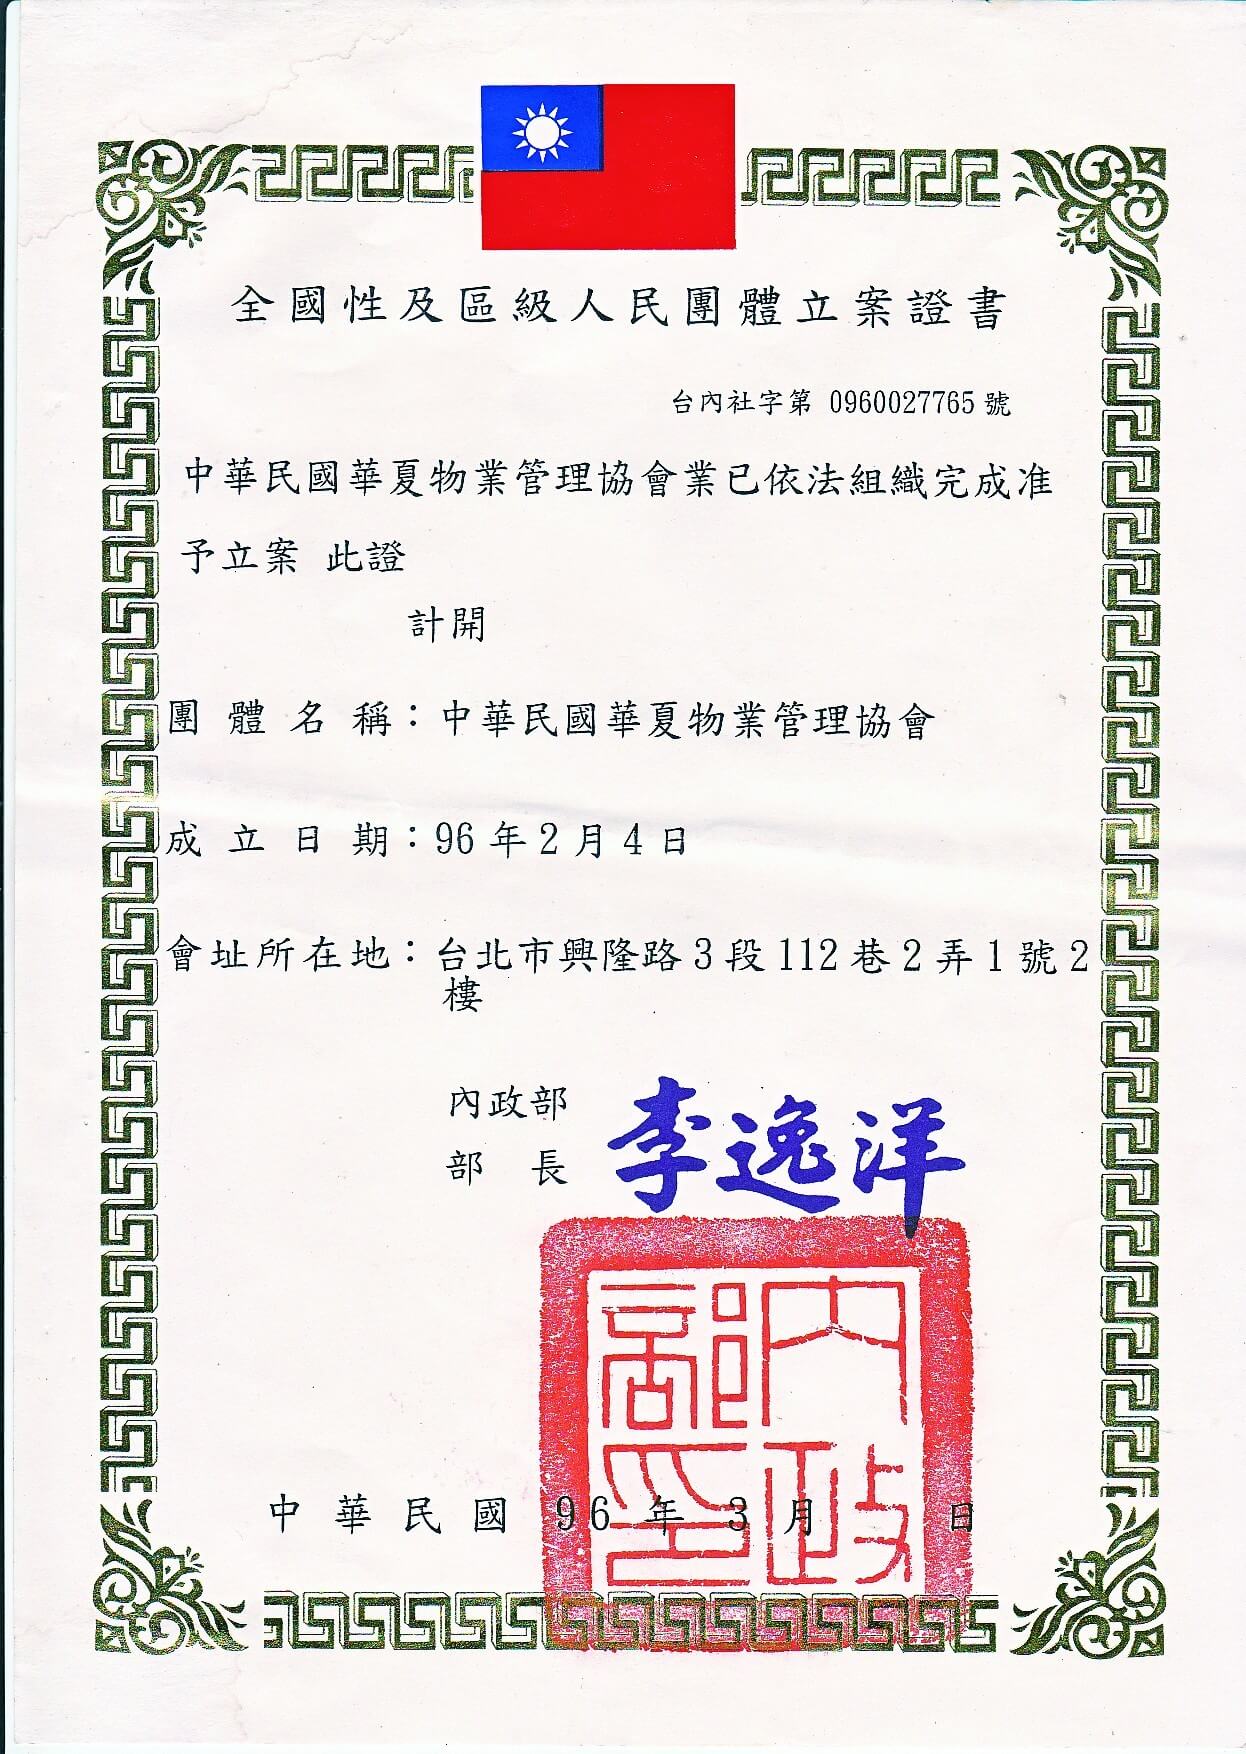 全國性及區級人民團體立案證書
台內社字第 0960027765 號
中華民國華夏物業管理協會業已依法組織完成准
予立案 此證
計開
團體名稱：中華民國華夏物業管理協會
成立日期：96年2月4日
會址所在地：台北市興隆路3段112巷2弄1號2
樓
內政部
部 長 李逸洋
內政部印
中華民國 96 年 3 月 日